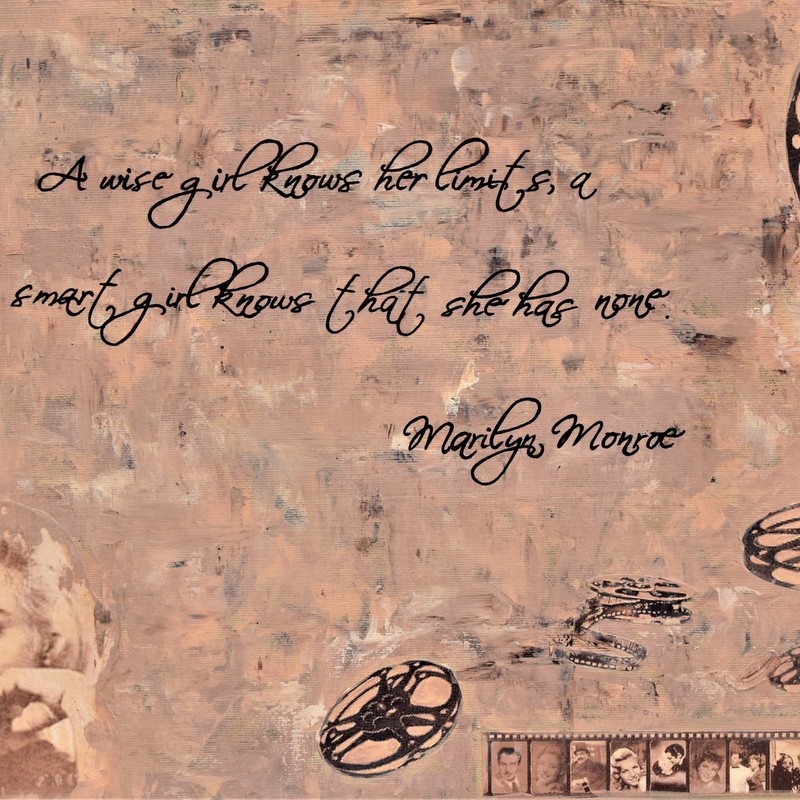 A wise girl knows her limits, a
smart girl knows that she has none.
Marilyn Monroe